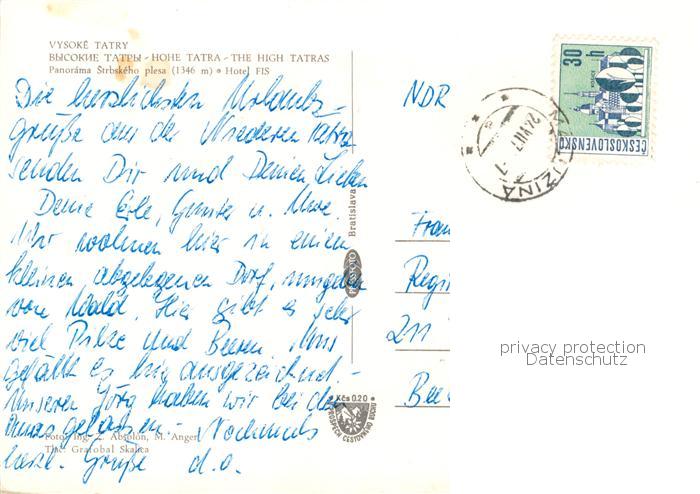 VYSOKÉ TATRY
ВЫСОКИЕ ТАТРЫ - HOHE TATRA - THE HIGH TATRAS
Panoráma Štrbského plesa (1346 m) • Hotel FIS
Die herzlichsten Urlaubs-
grüße aus der Niederen Tatra
senden Dir und Deinen Lieben
Deine Erle, Günter u.
Wir wohnen hier in einem
kleinen, abgelegenen Dorf, umgeben
von Wald. Hier gibt es sehr
viel Pilze und Beeren. Uns
gefällt es hier ausgezeichnet. -
Unseren Jörg haben wir bei der
Omas gelassen. - Nochmals
herzl. Grüße d. o.
Foto: Ing. Z. Absolon, M. Anger
Tlač: Grafobal Skalica
Bratislava
Kčs 0.20
PROSPECH CESTOVNÉHO RUCHU
NDR
30 h
ČESKOSLOVENSKO
Fran
Regi
211
Bee
privacy protection
Datenschutz